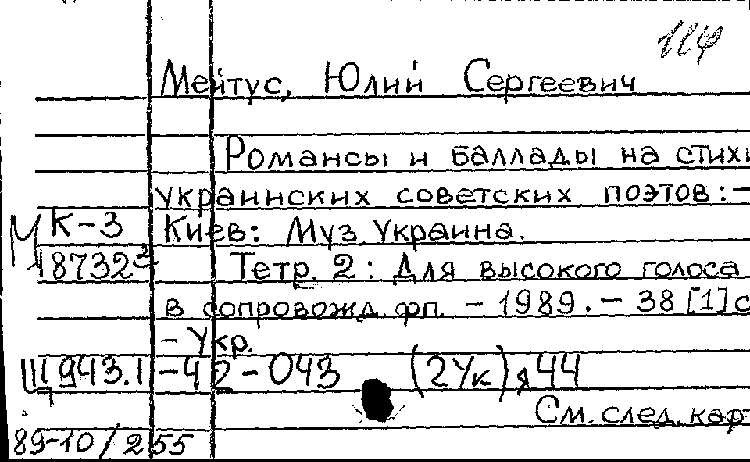 114
Мейтус, Юлий Сергеевич
Романсы и баллады на стихи
украинских советских поэтов: –
М К-3 Киев: Муз. Украïна.
18732³ Тетр. 2: Для высокого голоса
в сопровожд. фп. – 1989. – 38 [1] с
– Укр.
Щ 943.1 – 4 2 – 043 (2Ук) я 44
См. след. кар
89-10/255